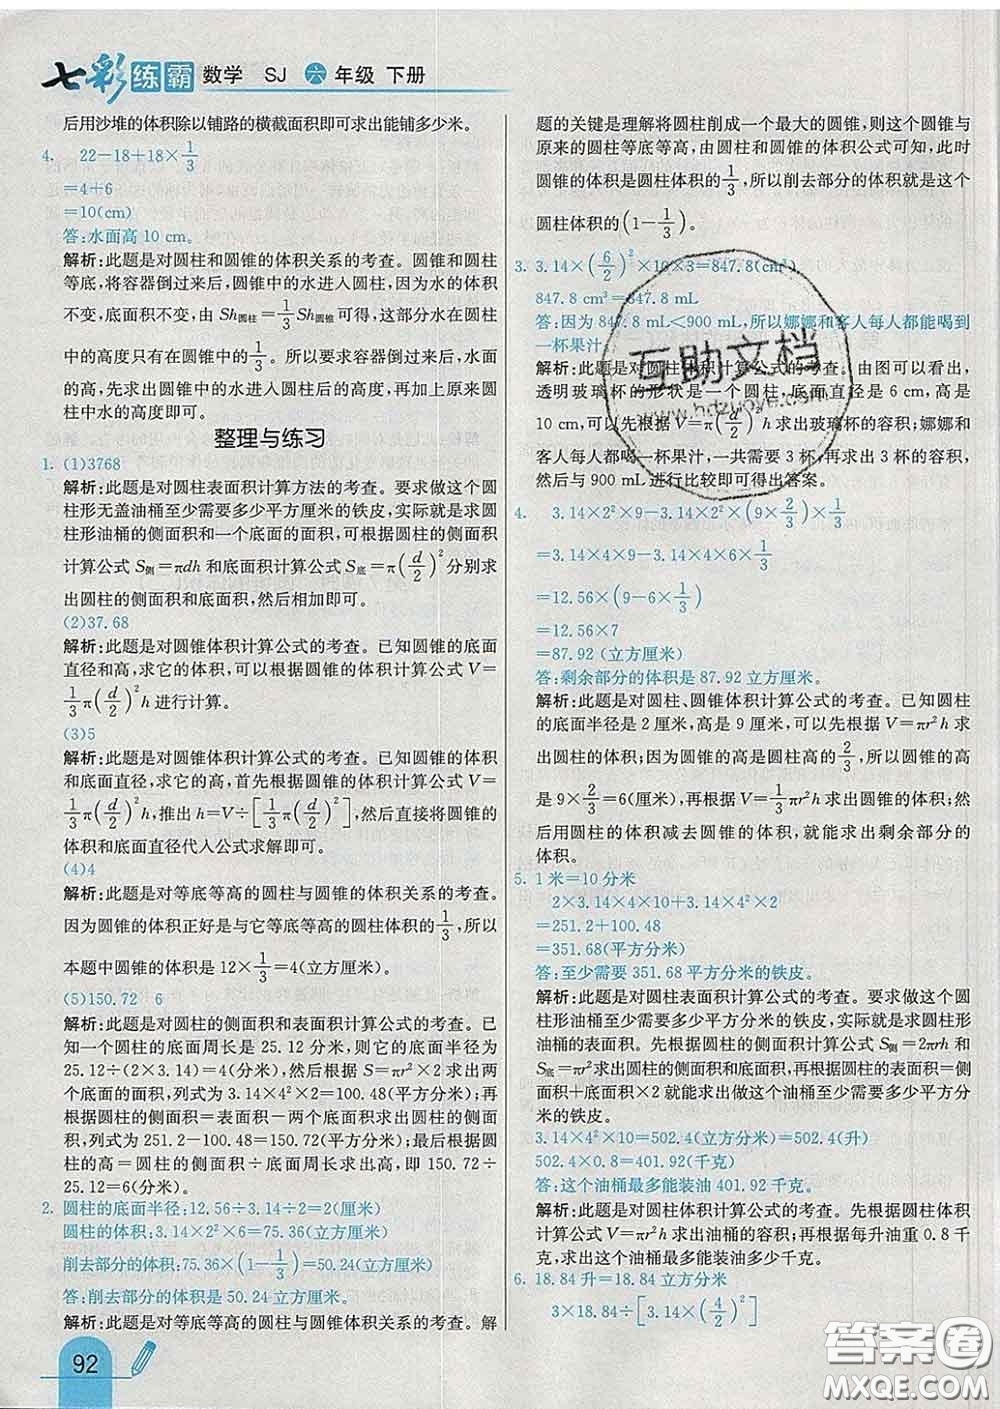 七彩练霸 数学 SJ 六年级 下册
后用沙堆的体积除以铺路的横截面积即可求出能铺多少米。
4. 22-18+18×1/3
=4+6
=10(cm)
答:水面高10 cm。
解析:此题是对圆柱和圆锥的体积关系的考查。圆锥和圆柱
等底,将容器倒过来后,圆锥中的水进入圆柱,因为水的体积
不变,底面积不变,由 Sh圆柱=1/3Sh圆锥可得,这部分水在圆柱
中的高度只有在圆锥中的1/3。所以要求容器倒过来后,水面
的高,先求出圆锥中的水进入圆柱后的高度,再加上原来圆
柱中水的高度即可。
整理与练习
1. (1)3768
解析:此题是对圆柱表面积计算方法的考查。要求做这个圆
柱形无盖油桶至少需要多少平方厘米的铁皮,实际就是求圆
柱形油桶的侧面积和一个底面的面积,可根据圆柱的侧面积
计算公式 S侧=πdh 和底面积计算公式 S底=π(d/2)²分别求
出圆柱的侧面积和底面积,然后相加即可。
(2)37.68
解析:此题是对圆锥体积计算公式的考查。已知圆锥的底面
直径和高,求它的体积,可以根据圆锥的体积计算公式 V=
1/3π(d/2)²h 进行计算。
(3)5
解析:此题是对圆锥体积计算公式的考查。已知圆锥的体积
和底面直径,求它的高,首先根据圆锥的体积计算公式 V=
1/3π(d/2)²h,推出 h=V÷[1/3π(d/2)²],然后直接将圆锥
的体积和底面直径代入公式求解即可。
(4)4
解析:此题是对等底等高的圆柱与圆锥的体积关系的考查。
因为圆锥的体积正好是与它等底等高的圆柱体积的1/3,所以
本题中圆锥的体积是 12×1/3=4(立方厘米)。
(5)150.72 6
解析:此题是对圆柱的侧面积和表面积计算公式的考查。已
知一个圆柱的底面周长是 25.12 分米,则它的底面半径为
25.12÷(2×3.14)=4(分米),然后根据 S=πr²×2 求出两
个底面的面积,列式为 3.14×4²×2=100.48(平方分米);再
根据圆柱的侧面积=表面积-两个底面积求出圆柱的侧面
积,列式为 251.2-100.48=150.72(平方分米);最后根据圆
柱的高=圆柱的侧面积÷底面周长求出高,即 150.72÷
25.12=6(分米)。
2. 圆柱的底面半径:12.56÷3.14÷2=2(厘米)
圆柱的体积:3.14×2²×6=75.36(立方厘米)
削去部分的体积:75.36×(1-1/3)=50.24(立方厘米)
答:削去部分的体积是 50.24 立方厘米。
解析:此题是对等底等高的圆柱与圆锥体积关系的考查。解
题的关键是理解将圆柱削成一个最大的圆锥,则这个圆锥与
原来的圆柱等底等高,由圆柱和圆锥的体积公式可知,此时
圆锥的体积是圆柱体积的1/3,所以削去部分的体积就是这个
圆柱体积的(1-1/3)。
3. 3.14×(6/2)²×10×3=847.8(cm³)
847.8 cm³=847.8 mL
答:因为 847.8 mL<900 mL,所以娜娜和客人每人都能喝到
一杯果汁。
解析:此题是对圆柱体积计算公式的考查。由图可以看出,
透明玻璃杯的形状是一个圆柱,底面直径是 6 cm,高是
10 cm,可以先根据 V=π(d/2)²h 求出玻璃杯的容积;娜娜和
客人每人都喝一杯果汁,一共需要 3 杯,再求出 3 杯的容积,
然后与 900 mL 进行比较即可得出答案。
4. 3.14×2²×9-3.14×2²×(9×2/3)×1/3
=3.14×4×9-3.14×4×6×1/3
=12.56×(9-6×1/3)
=12.56×7
=87.92(立方厘米)
答:剩余部分的体积是 87.92 立方厘米。
解析:此题是对圆柱、圆锥体积计算公式的考查。已知圆柱
的底面半径是 2 厘米,高是 9 厘米,可以先根据 V=πr²h 求
出圆柱的体积;因为圆锥的高是圆柱高的2/3,所以圆锥的高
是 9×2/3=6(厘米),再根据 V=1/3πr²h 求出圆锥的体积;然
后用圆柱的体积减去圆锥的体积,就能求出剩余部分的
体积。
5. 1 米=10 分米
2×3.14×4×10+3.14×4²×2
=251.2+100.48
=351.68(平方分米)
答:至少需要 351.68 平方分米的铁皮。
解析:此题是对圆柱表面积计算公式的考查。要求做这个圆
柱形油桶至少需要多少平方分米的铁皮,实际就是求圆柱形
油桶的表面积。先根据圆柱的侧面积计算公式 S侧=2πrh 和
S底=πr²求出圆柱的侧面积和底面积,再根据圆柱的表面积=侧
面积+底面积×2 就能求出做这个油桶至少需要多少平方分
米的铁皮。
3.14×4²×10=502.4(立方分米)=502.4(升)
502.4×0.8=401.92(千克)
答:这个油桶最多能装油 401.92 千克。
解析:此题是对圆柱体积计算公式的考查。先根据圆柱体积
计算公式 V=πr²h 求出油桶的容积;再根据每升油重 0.8 千
克,求出这个油桶最多能装油多少千克。
6. 18.84 升=18.84 立方分米
3×18.84÷[3.14×(4/2)²]
92
互助文档
www.hdzuoye.com
答案圈
MXQE.COM